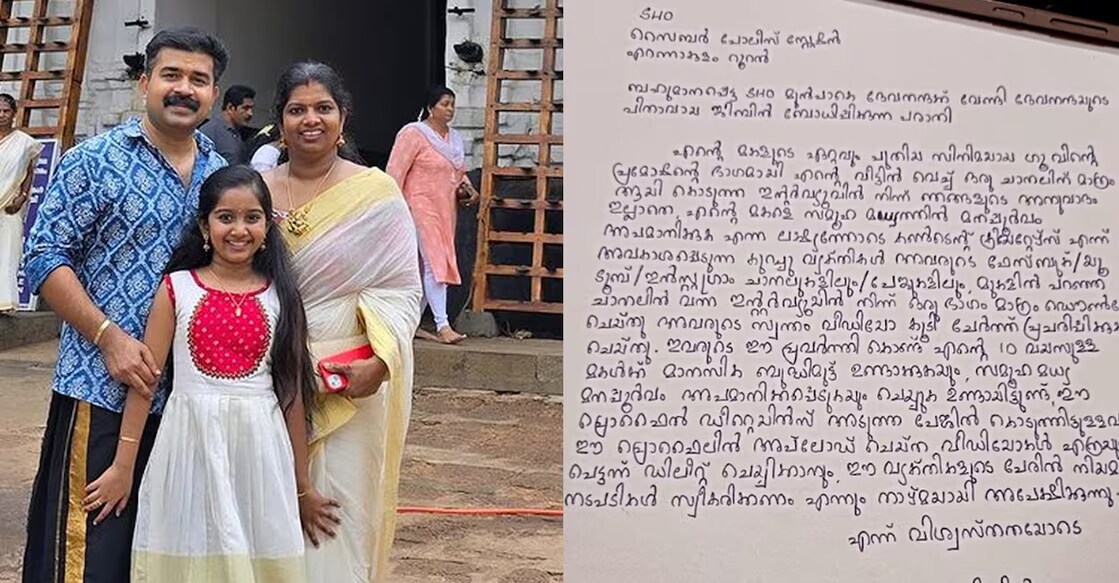 SHO
സൈബർ പോലീസ് സ്റ്റേഷൻ
എറണാകുളം റൂറൽ
ബഹുമാനപ്പെട്ട SHO മുൻപാകെ ദേവനന്ദക്ക് വേണ്ടി ദേവനന്ദയുടെ
പിതാവായ ജിബിൻ ബോധിപ്പിക്കുന്ന പരാതി
എന്റെ മകളുടെ ഏറ്റവും പുതിയ സിനിമയായ ഗു വിന്റെ
പ്രമോഷന്റെ ഭാഗമായി എന്റെ വീട്ടിൽ വെച്ച് ഒരു ചാനലിന് മാത്രം
ആയി കൊടുത്ത ഇന്റർവ്യൂവിൽ നിന്ന് ഞങ്ങളുടെ അനുവാദം
ഇല്ലാതെ, എന്റെ മകളെ സമൂഹ മധ്യത്തിൽ മനപ്പൂർവം
അപമാനിക്കുക എന്ന ലക്ഷ്യത്തോടെ കണ്ടെന്റ് ക്രിയേറ്റേഴ്സ് എന്ന്
അവകാശപ്പെടുന്ന കുറച്ചു വ്യക്തികൾ അവരുടെ ഫേസ്ബുക്/യൂ
ട്യൂബ്/ഇൻസ്റ്റഗ്രാം ചാനലുകളിലും/പേജുകളിലും, മുകളിൽ പറഞ്ഞ
ചാനലിൽ വന്ന ഇന്റർവ്യൂയിൽ നിന്ന് ഒരു ഭാഗം മാത്രം
ചെയ്തു അവരുടെ സ്വന്തം വീഡിയോ കൂടി ചേർത്ത് പ്രചരിപ്പിക്കു
ചെയ്തു. ഇവരുടെ ഈ പ്രവർത്തി കൊണ്ട് എന്റെ 10 വയസുള്ള
മകൾക്ക് മാനസിക ബുദ്ധിമുട്ട് ഉണ്ടാക്കുകയും, സമൂഹ മധ്യ
മനപ്പൂർവം അപമാനിക്കപ്പെടുകയും ചെയ്യുക ഉണ്ടായിട്ടുണ്ട്. ഈ
പ്രൊഫൈൽ ഡീറ്റെയിൽസ് അടുത്ത പേജിൽ കൊടുത്തിട്ടുള്ളവ
ഈ പ്രൊഫൈലിൽ അപ്‌ലോഡ് ചെയ്ത വീഡിയോകൾ എത്രയും
പെട്ടന്ന് ഡിലീറ്റ് ചെയ്യിക്കാനും, ഈ വ്യക്തികളുടെ പേരിൽ നിയമ
നടപടികൾ സ്വീകരിക്കണം എന്നും താഴ്മയായി അപേക്ഷിക്കുന്നു
എന്ന് വിശ്വസ്തതയോടെ